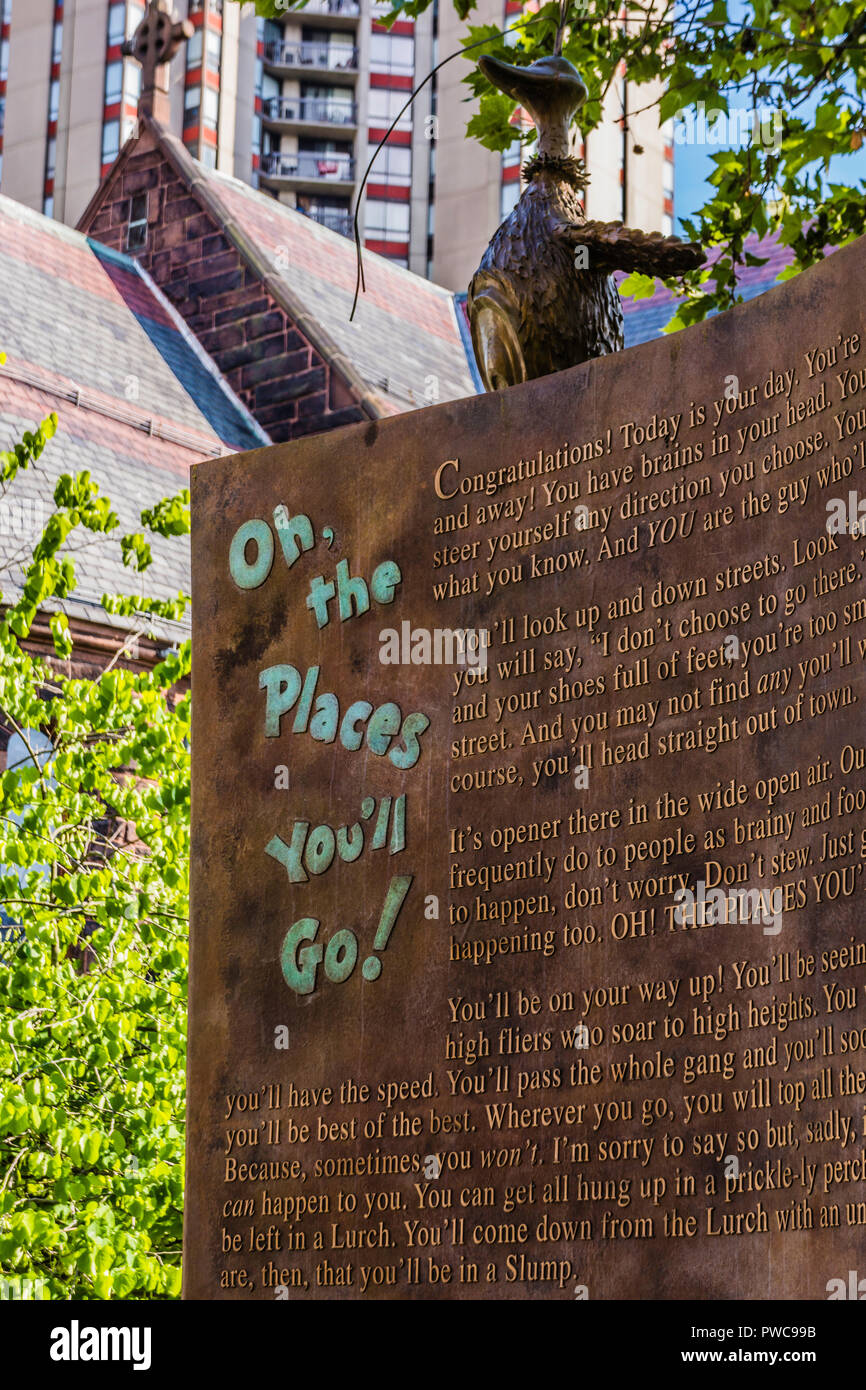 Oh,
the
Places
You'll
Go!
Congratulations! Today is your day. You're
and away! You have brains in your head. You
steer yourself any direction you choose. You
what you know. And YOU are the guy who'll
You'll look up and down streets. Look 'em
you will say, "I don't choose to go there."
and your shoes full of feet, you're too
street. And you may not find any you'll
course, you'll head straight out of town.
It's opener there in the wide open air.
frequently do to people as brainy and
to happen, don't worry. Don't stew. Just
happening too. OH! THE PLACES
You'll be on your way up! You'll be
high fliers who soar to high heights. You
you'll have the speed. You'll pass the whole gang and you'll
you'll be best of the best. Wherever you go, you will top all the
Because, sometimes, you won't. I'm sorry to say so but, sadly,
can happen to you. You can get all hung up in a prickle-ly
be left in a Lurch. You'll come down from the Lurch with an
are, then, that you'll be in a Slump.
alamy
Image ID: PWC99B
www.alamy.com